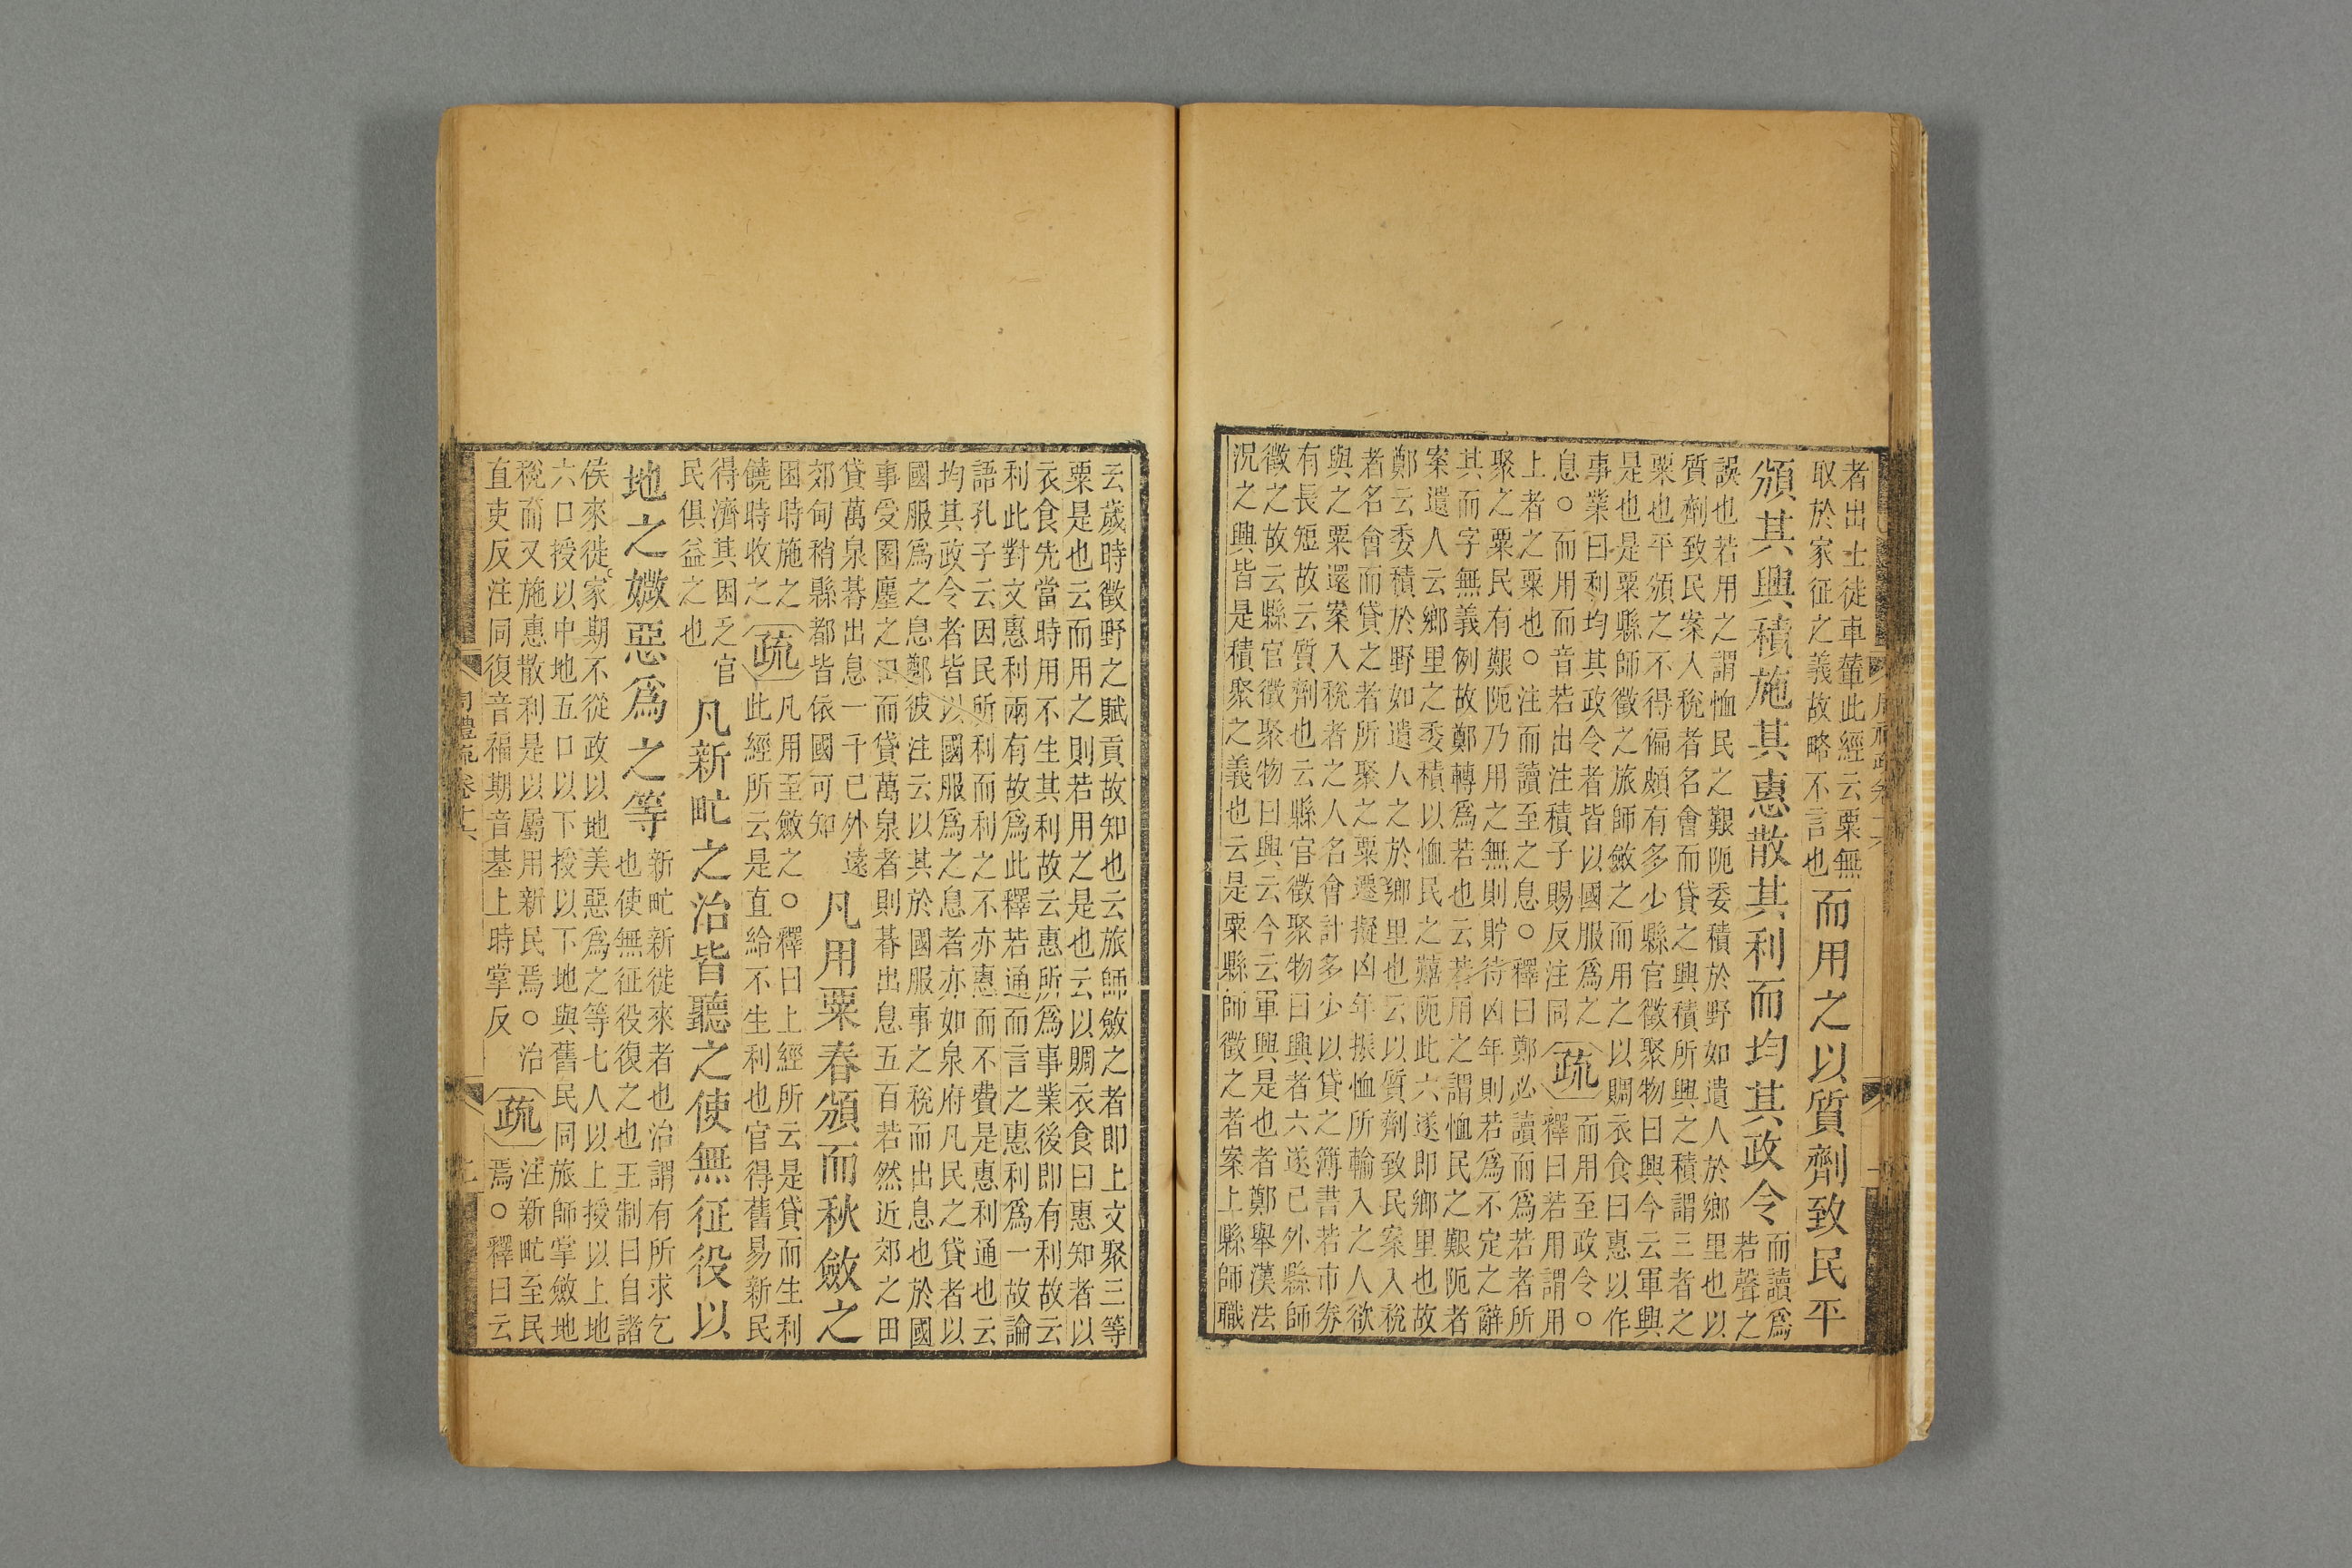 者出土徒車輦此經云粟無
取於家征之義故略不言也
而用之以質劑致民平
頒其興積施其惠散其利而均其政令
而讀爲
若聲之
誤也若用之謂恤民之艱阨委積於野如遺人於鄉里也以
質劑致民案入稅者名會而貸之興積所興之積謂三者之
粟也平頒之不得偏頗有多少縣官徵聚物曰興今云軍興
是也是粟縣師徵之旅師斂之而用之以賙衣食曰惠以作
事業曰利均其政令者皆以國服爲之
息○而用而音若出注積子賜反注同
疏
而用至政令○
釋曰若用謂用
上者之粟也○注而讀至之息○釋曰鄭必讀而爲若者所
聚之粟民有艱阨乃用之無則貯待凶年則若爲不定之辭
其而字無義例故鄭轉爲若也云若用之謂恤民之艱阨者
案遺人云鄉里之委積以恤民之囏阨此六遂即鄉里也故
鄭云委積於野如遺人之於鄉里也云以質劑致民案入稅
者名會而貸之者所聚之粟還擬凶年振恤所輸入之人欲
與之粟還案入稅者之人名會計多少以貸之簿書若市券
有長短故云質劑也云縣官徵聚物曰興者六遂已外縣師
徵之故云縣官徵聚物曰興云今云軍興是也者鄭舉漢法
況之興皆是積聚之義也云是粟縣師徵之者案上縣師職
云歲時徵野之賦貢故知也云旅師斂之者即上文聚三等
粟是也云而用之則若用之是也云以賙衣食曰惠知者以
衣食先當時用不生其利故云惠所爲事業後即有利故云
利此對文惠利兩有故爲此釋若通而言之惠利爲一故論
語孔子云因民所利而利之不亦惠而不費是惠利通也云
均其政令者皆以國服爲之息者亦如泉府凡民之貸者以
國服爲之息鄭彼注云以其於國服事之稅而出息也於國
事受園廛之田而貸萬泉者則朞出息五百若然近郊之田
貸萬泉朞出息一千已外遠
郊甸稍縣都皆依國可知
凡用粟春頒而秋斂之
困時施之
饒時收之
疏
凡用至斂之○釋曰上經所云是貸而生利
此經所云是直給不生利也官得舊易新民
得濟其困乏官
民俱益之也
凡新甿之治皆聽之使無征役以
地之媺惡爲之等
新甿新徙來者也治謂有所求乞
也使無征役復之也王制曰自諸
侯來徙家期不從政以地美惡爲之等七人以上授以上地
六口授以中地五口以下授以下地與舊民同旅師掌斂地
稅而又施惠散利是以屬用新民焉○治
直吏反注同復音福期音基上時掌反
疏
注新甿至民
焉○釋曰云
周禮疏卷十六